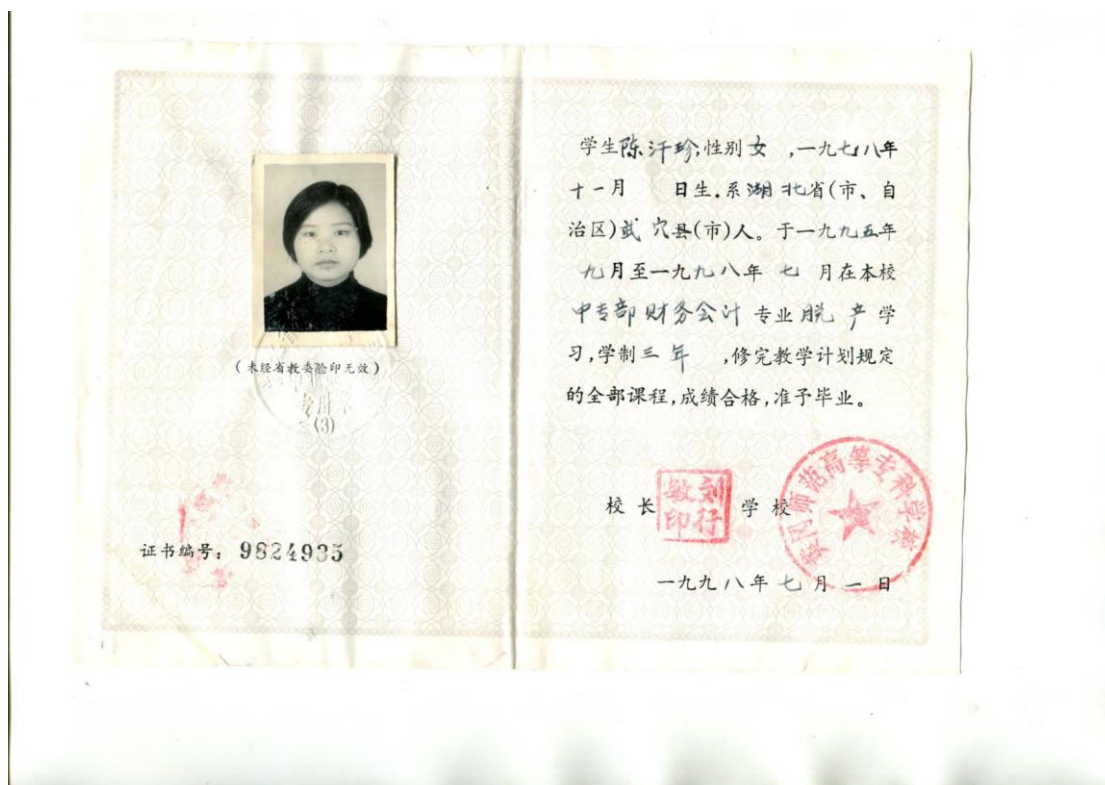 (未经省教委验印无效)
专用
(3)
证书编号: 9824935
学生陈汗珍,性别女 ,一九七八年
十一月 日生.系湖北省(市、自
治区)武穴县(市)人。于一九九五年
九月至一九九八年 七 月在本校
中专部财务会计 专业脱 产 学
习,学制三年 ,修完教学计划规定
的全部课程,成绩合格,准予毕业。
校长 刘行敏印 学校
黄冈师范高等专科学校
一九九八年七月一日